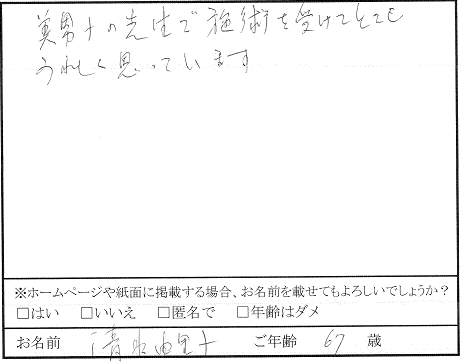 美男子の先生で施術を受けてとても
うれしく思っています
※ホームページや紙面に掲載する場合、お名前を載せてもよろしいでしょうか？
□はい　□いいえ　□匿名で　□年齢はダメ
お名前　清水由里子　ご年齢　67　歳